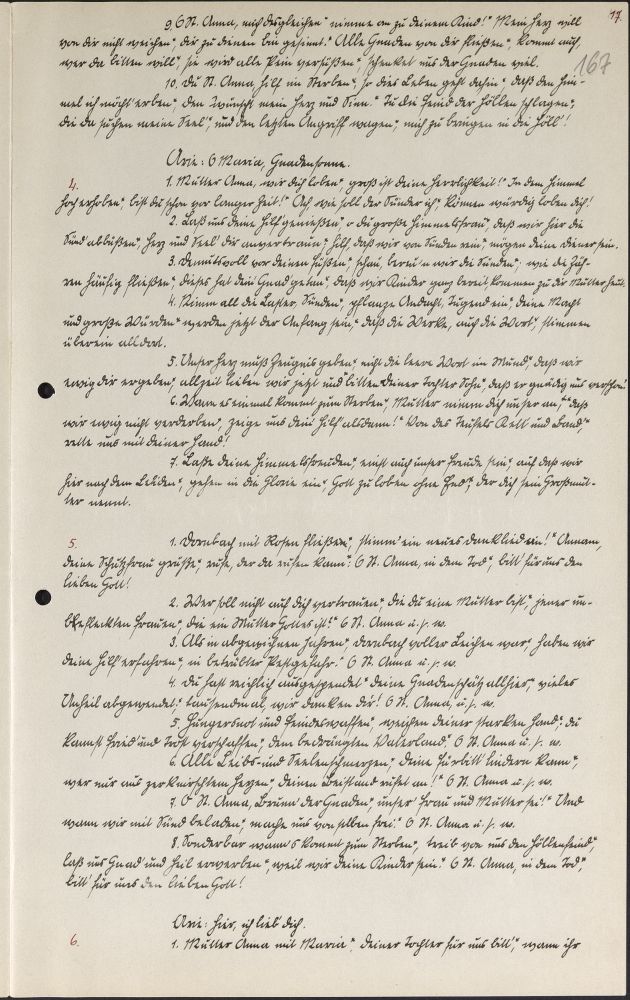 17.
167
9. O St. Anna, mich desgleichen" nimme an zu deinem Kind!" Mein Herz will
von dir nicht weichen", dir zu dienen bin gesinnt." Alle Gnaden von dir fließen", kommt auch,
wer da bitten will", sie wird alle Pein versüßen", schenket uns der Gnaden viel.
10. Du St. Anna, hilf im Sterben", so dies Leben geht dahin", daß den Him-
mel ich möcht' erben", den wünscht mein Herz und Sinn." Tu die Feind der Höllen schlagen",
die da suchen meine Seel", und den letzten Angriff wagen", mich zu bringen in die Höll'!
Arie: O Maria, Gnadensonne.
4. 1. Mutter Anna, wir dich loben" groß ist deine Herrlichkeit!" In dem Himmel
hocherhoben", bist du schon vor langer Zeit!" Ach wie soll der Sünder ich", können würdig loben dich!
2. Laß uns deine Hilf genießen", o du große Himmelsfrau", daß wir hier die
Sünd abbüßen", Herz und Seel' dir anvertrauen", hilf, daß wir von Sünden rein", mögen deine Diener sein.
3. Demutsvoll vor deinen Füßen", schau, bereu'n wir die Sünden", wie die Zäh-
ren häufig fließen", dieses hat dein Gnad getan", daß wir Kinder ganz bereit, kommen zu dir Mutter heut.
4. Nimm all die Laster, Sünden", pflanze Andacht, Tugend ein", deine Macht
und große Würden" werden jetzt der Anfang sein", daß die Werke, auch die Wort", stimmen
überein all dort.
5. Unser Herz muß Zeugnis geben", nicht die leere Wort im Mund", daß wir
ewig dir ergeben", allzeit lieben wir jetzt und bitten deiner Tochter Sohn", daß er gnädig uns verschon'
6. Wann es einmal kommt zum Sterben", Mutter nimm dich unser an!" daß
wir ewig nicht verderben", zeige uns dein Hilf alsdann!" Von des Teufels Kett und Band",
rette uns mit deiner Hand!
7. Laße deine Himmelsfreuden", einst auch unser Freude sein", auf daß wir
hier nach dem Leiden", gehen in die Glorie ein", Gott zu loben ohne End", der dich sein Großmut-
ter nennt.
5. 1. Dornbach mit Rosen fließen", stimm' ein neues Danklied ein!" Annam,
deine Schutzfrau grüße", rufe, der da rufen kann": O St. Anna, in dem Tod", bitt' für uns den
lieben Gott!
2. Wer soll nicht auf dich vertrauen", die du eine Mutter bist", jener un-
befleckten Frauen", die ein Mutter Gottes ist!" O St. Anna u. s. w.
3. Als in abgewichnen Jahren", Dornbach voller Leichen war", haben wir
deine Hilf' erfahren", in betrübter Pestgefahr." O St. Anna u. s. w.
4. Du hast reichlich ausgespendet" deine Gnadenschätz allhier", vieles
Unheil abgewendet", tausendmal, wir danken dir! O St. Anna, u. s. w.
5. Hungersnot und Feindeswaffen", weichen deiner starken Hand", du
kannst Fried und Trost verschaffen", dem bedrängten Vaterland." O St. Anna u. s. w.
6. Alle Leibs- und Seelenschmerzen", deine Fürbitt lindern kann",
wer nur aus zerknirschtem Herzen", deinen Beistand rufet an!" O St. Anna u. s. w.
7. O St. Anna, Brunn der Gnaden", unser Frau und Mutter sei!" Und
wann wir mit Sünd beladen", mache uns von selben frei." O St. Anna u. s. w.
8. Sonderbar wann's kommt zum Sterben", treib von uns den Höllenfeind",
laß uns Gnad und Heil erwerben", weil wir deine Kinder sein." O St. Anna, in dem Tod",
bitt' für uns den lieben Gott!
Arie: Hier, ich lieb' dich.
6. 1. Mutter Anna mit Maria", deiner Tochter für uns bitt'", wann ihr